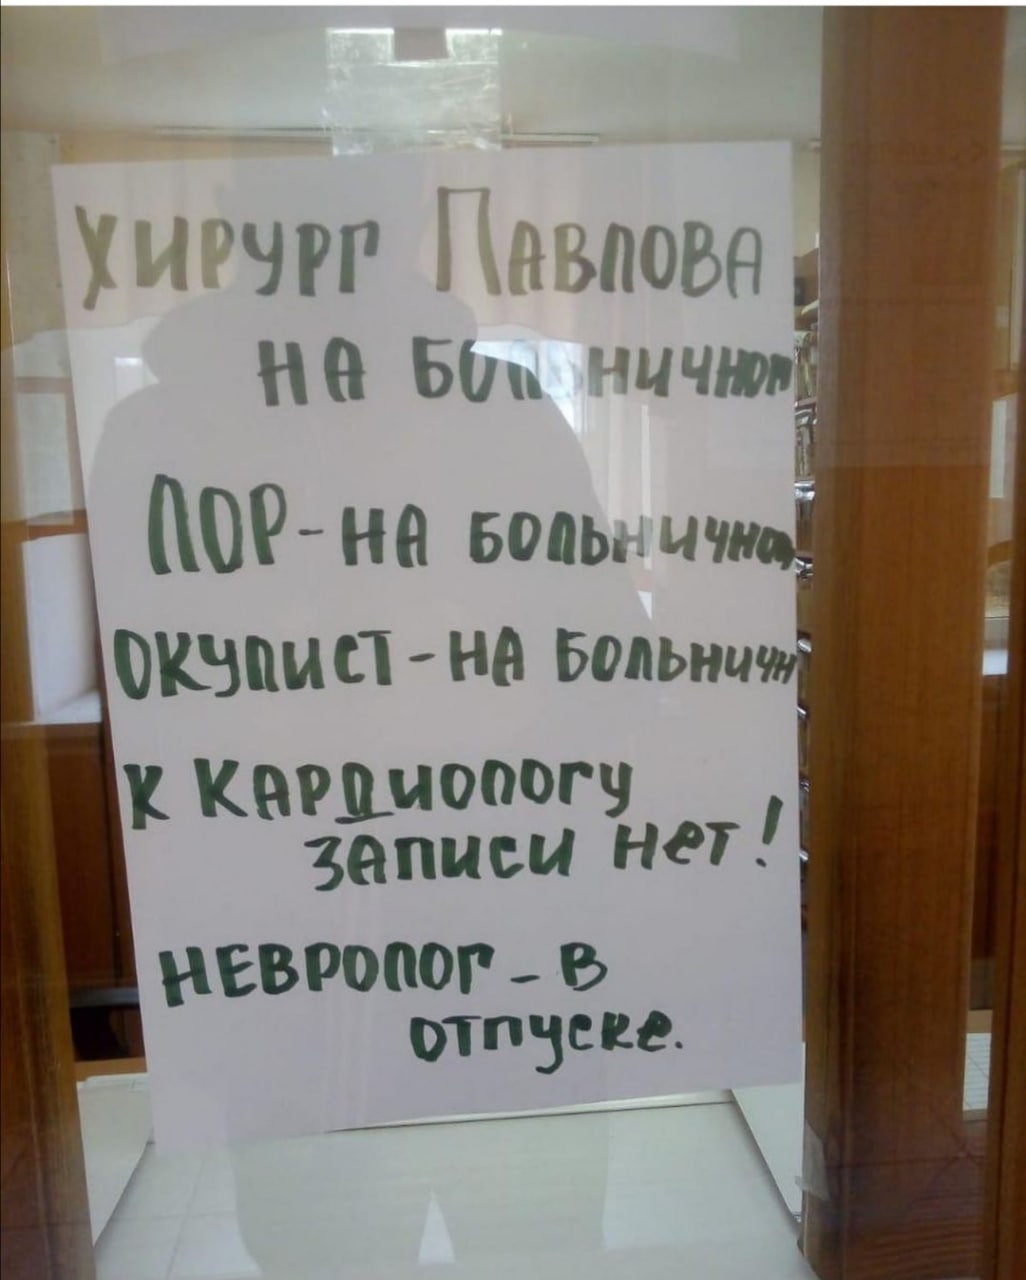 ХИРУРГ ПАВЛОВА
НА БОЛЬНИЧНОМ
ЛОР - НА БОЛЬНИЧНОМ
ОКУЛИСТ - НА БОЛЬНИЧН
К КАРДИОЛОГУ
ЗАПИСИ НЕТ!
НЕВРОЛОГ - В
ОТПУСКЕ.